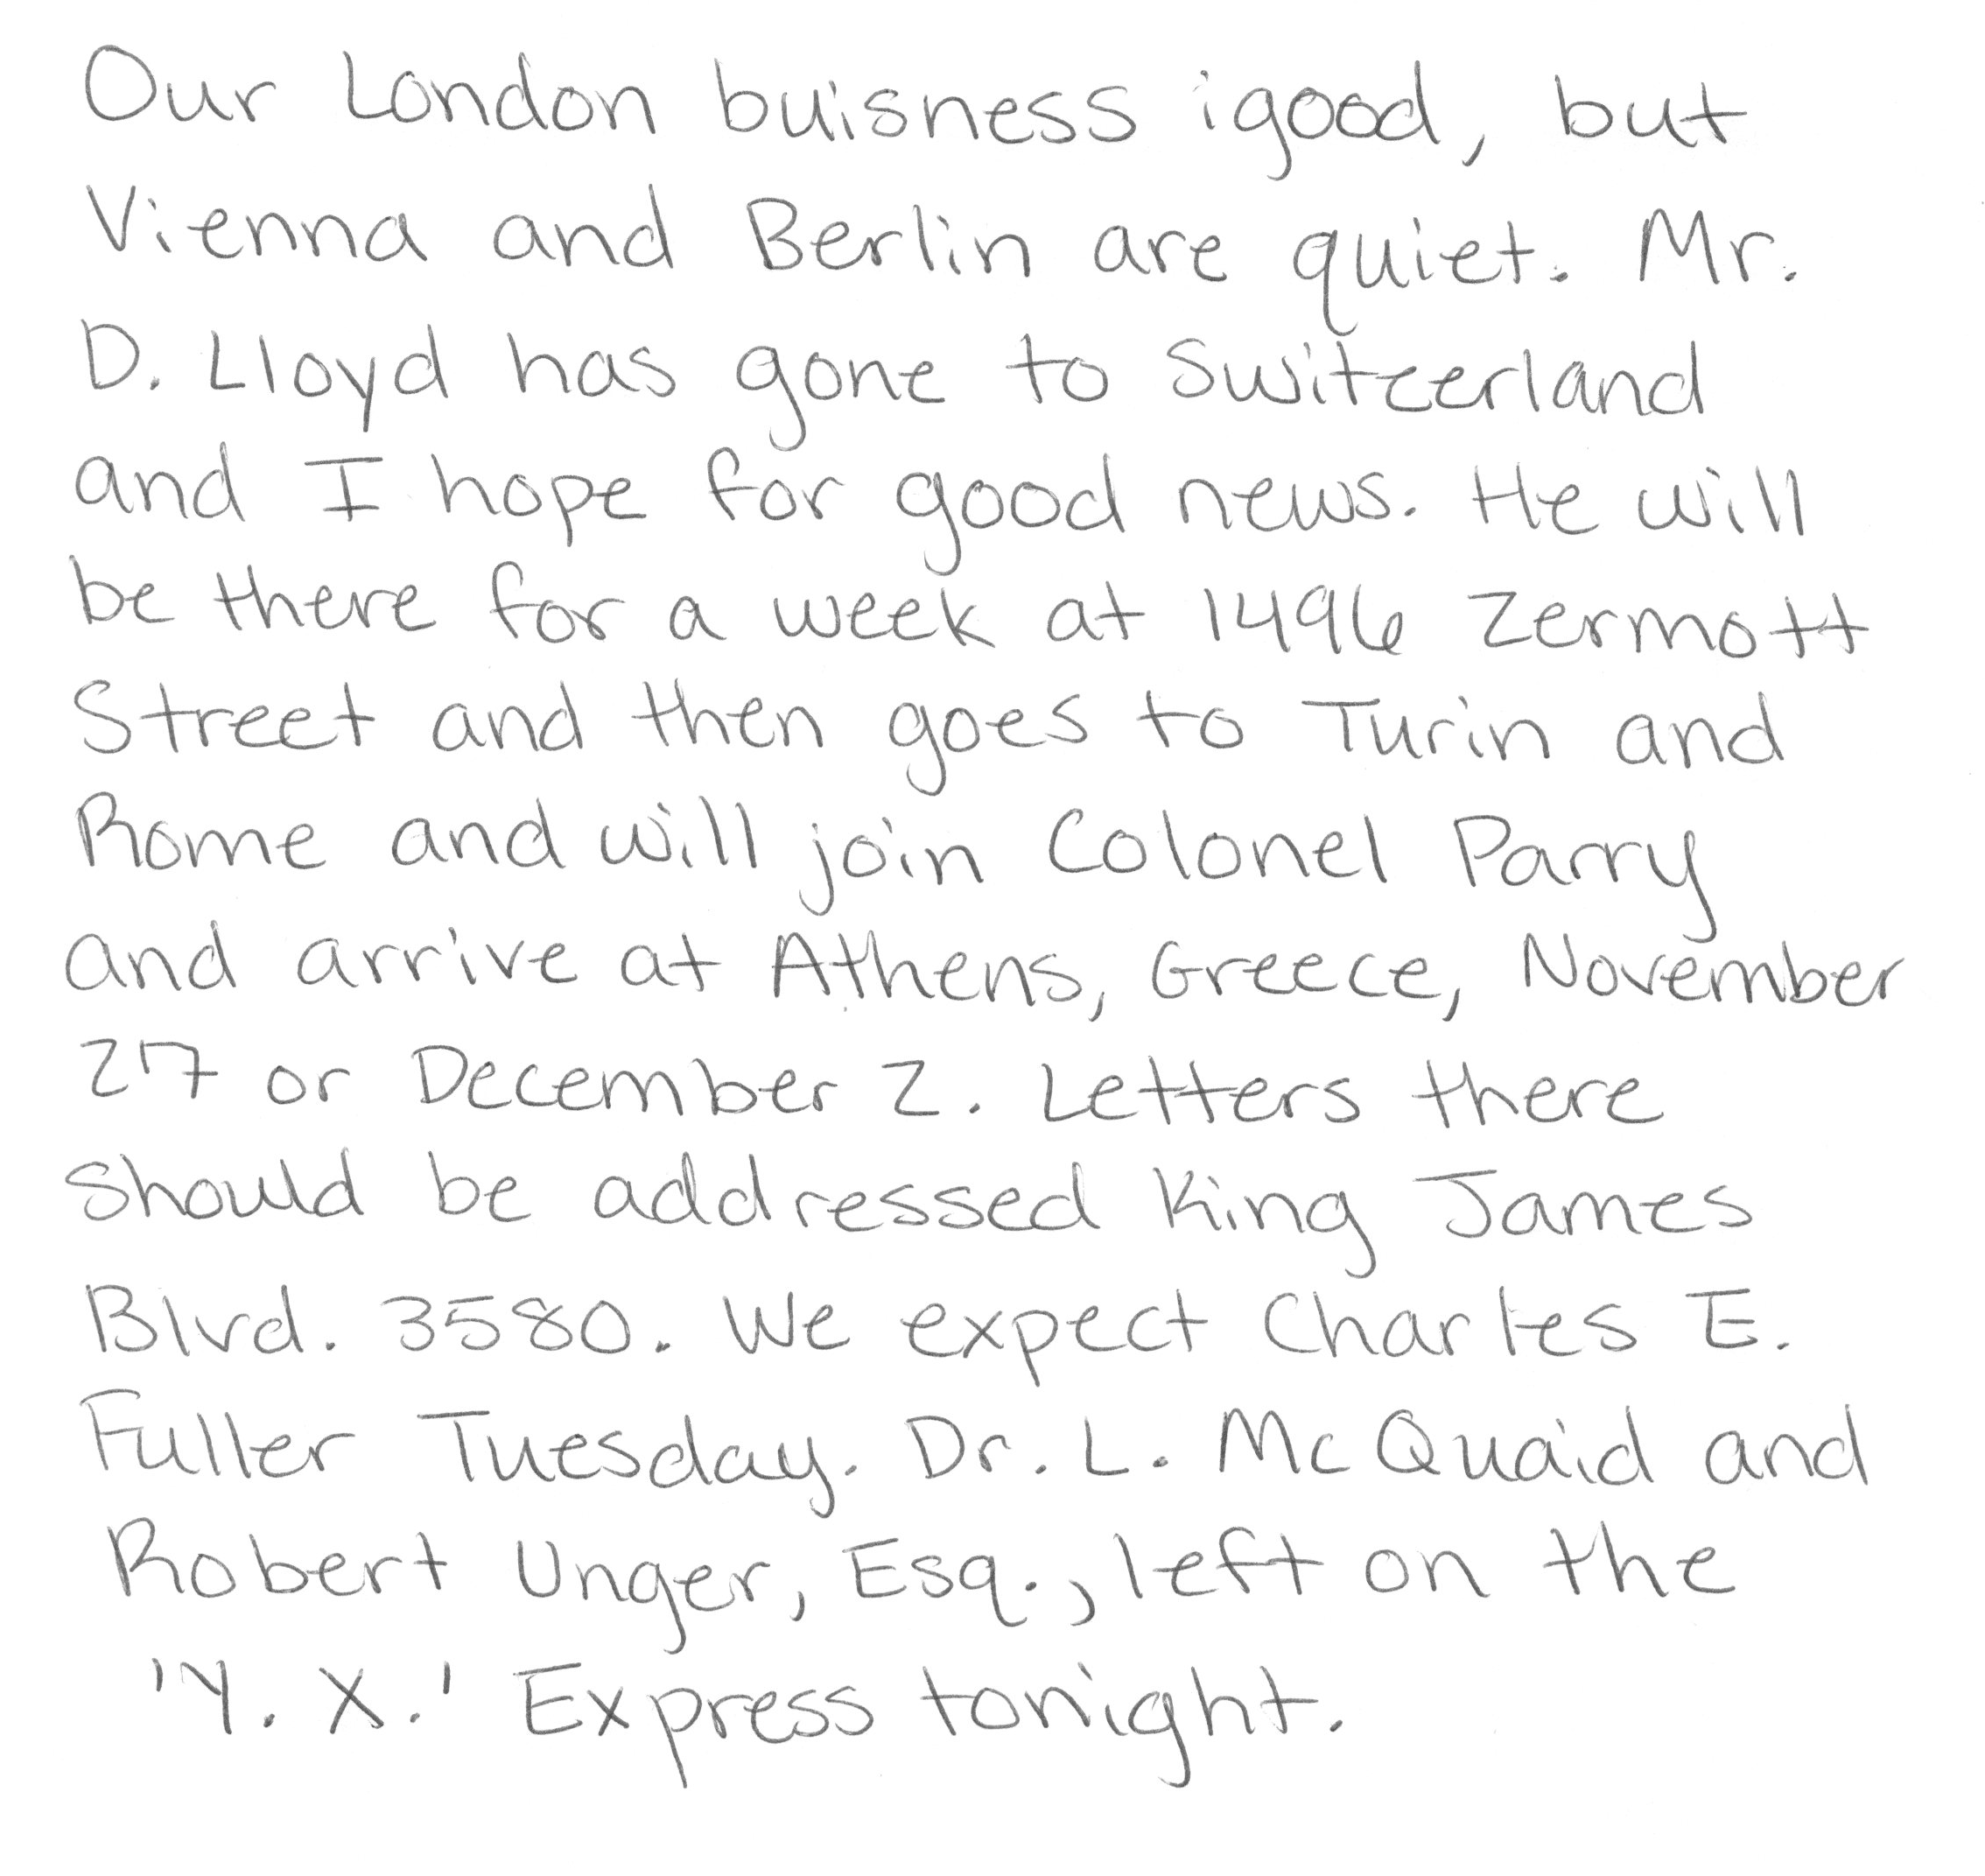 Our London buisness igood, but
Vienna and Berlin are quiet. Mr.
D. Lloyd has gone to Switzerland
and I hope for good news. He will
be there for a week at 1496 Zermott
Street and then goes to Turin and
Rome and will join Colonel Parry
and arrive at Athens, Greece, November
27 or December 2. Letters there
should be addressed King James
Blvd. 3580. We expect Charles E.
Fuller Tuesday. Dr. L. McQuaid and
Robert Unger, Esq., left on the
'Y. X.' Express tonight.